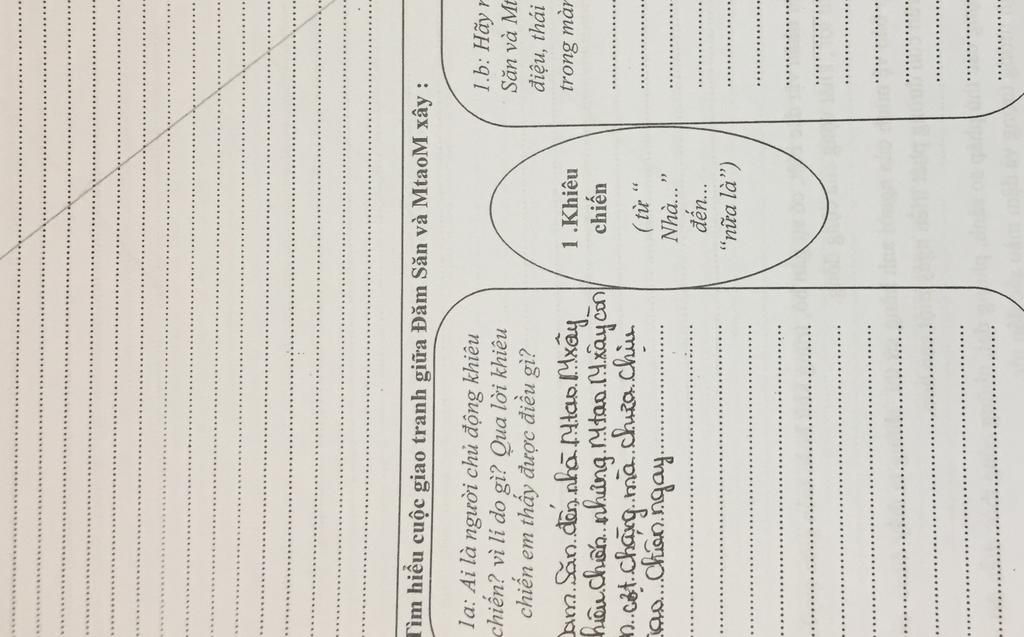 Tìm hiểu cuộc giao tranh giữa Đăm Săn và MtaoM xây :
1a: Ai là người chủ động khiêu
chiến? vì lí do gì? Qua lời khiêu
chiến em thấy được điều gì?
Săn đến nhà Mtao Mxây
chiến nhưng Mtao Mxây còn
cột chàng mà chưa chịu
chiến ngay
1 .Khiêu
chiến
( từ “
Nhà...”
đến...
“nữa là”)
1.b: Hãy
Săn và
điệu, thái
trong